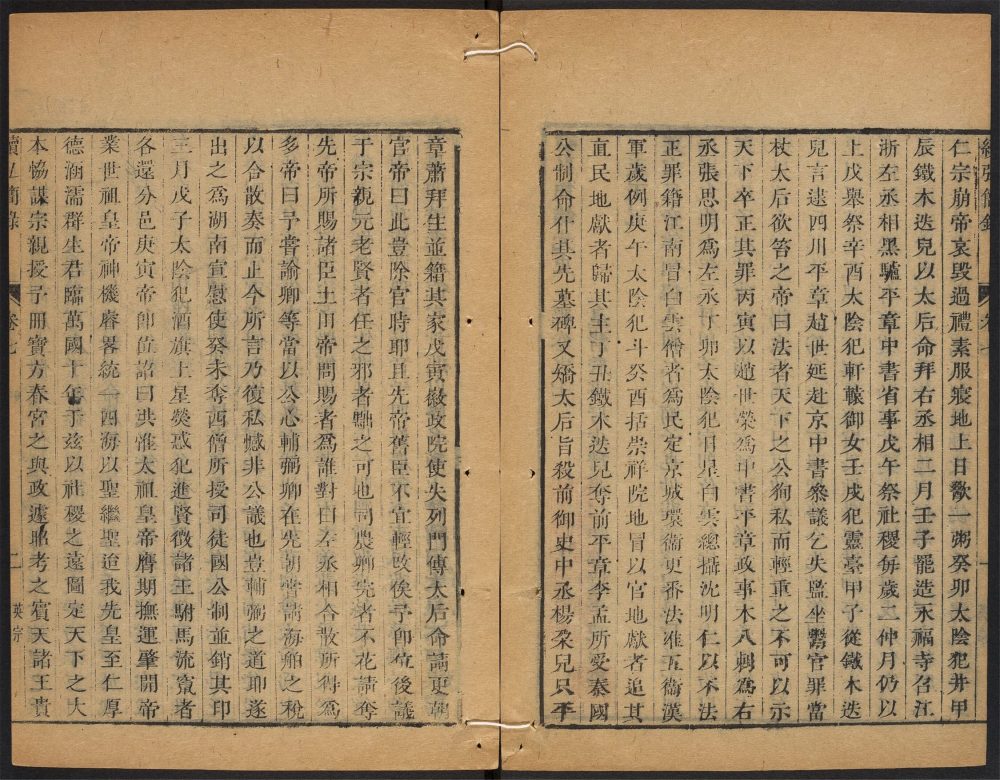 續弘簡錄 卷七 一
仁宗崩帝哀毀過禮素服寢地上日歠一粥癸卯太陰犯井甲
辰鐵木迭兒以太后命拜右丞相二月壬子罷造永福寺召江
浙左丞相黑驢平章中書省事戊午祭社稷每歲二仲月仍以
上戊舉祭辛酉太陰犯軒轅御女壬戌犯靈臺甲子從鐵木迭
兒言逮四川平章趙世延赴京中書參議乞失監坐鬻官罪當
杖太后欲笞之帝曰法者天下之公狥私而輕重之不可以示
天下卒正其罪丙寅以趙世榮爲中書平章政事木八剌爲右
丞張思明爲左丞丁卯太陰犯日星白雲總攝沈明仁以不法
正罪籍江南冒白雲僧者爲民定京城環衛更番法准五衛漢
軍歲例庚午太陰犯斗癸酉括崇祥院地冒以官地獻者追其
直民地獻者歸其主丁丑鐵木迭兒奪前平章李孟所受秦國
公制命仆其先墓碑又矯太后旨殺前御史中丞楊朶兒只平
章蕭拜生並籍其家戊寅徽政院使失列門傳太后命請更朝
官帝曰此豈除官時耶且先帝舊臣不宜輕改俟予卽位後議
于宗親元老賢者任之邪者黜之可也司農卿完者不花請奪
先帝所賜諸臣土田帝問賜者爲誰對曰左丞相合散所得爲
多帝曰予嘗諭卿等當以公心輔弼卿在先朝嘗請海舶之稅
以合散奏而止今所言乃復私憾非公議也豈輔弼之道耶遂
出之爲湖南宣慰使癸未奪西僧所授司徒國公制並銷其印
三月戊子太陰犯酒旗上星熒惑犯進賢徵諸王駙馬流竄者
各還分邑庚寅帝卽位詔曰洪惟太祖皇帝膺期撫運肇開帝
業世祖皇帝神機睿畧統一四海以聖繼聖迨我先皇至仁厚
德涵濡群生君臨萬國十年于玆以社稷之遠圖定天下之大
本恊謀宗親授予冊寶方春宮之與政遽昭考之賓天諸王貴
續弘簡錄 卷七 二 英宗